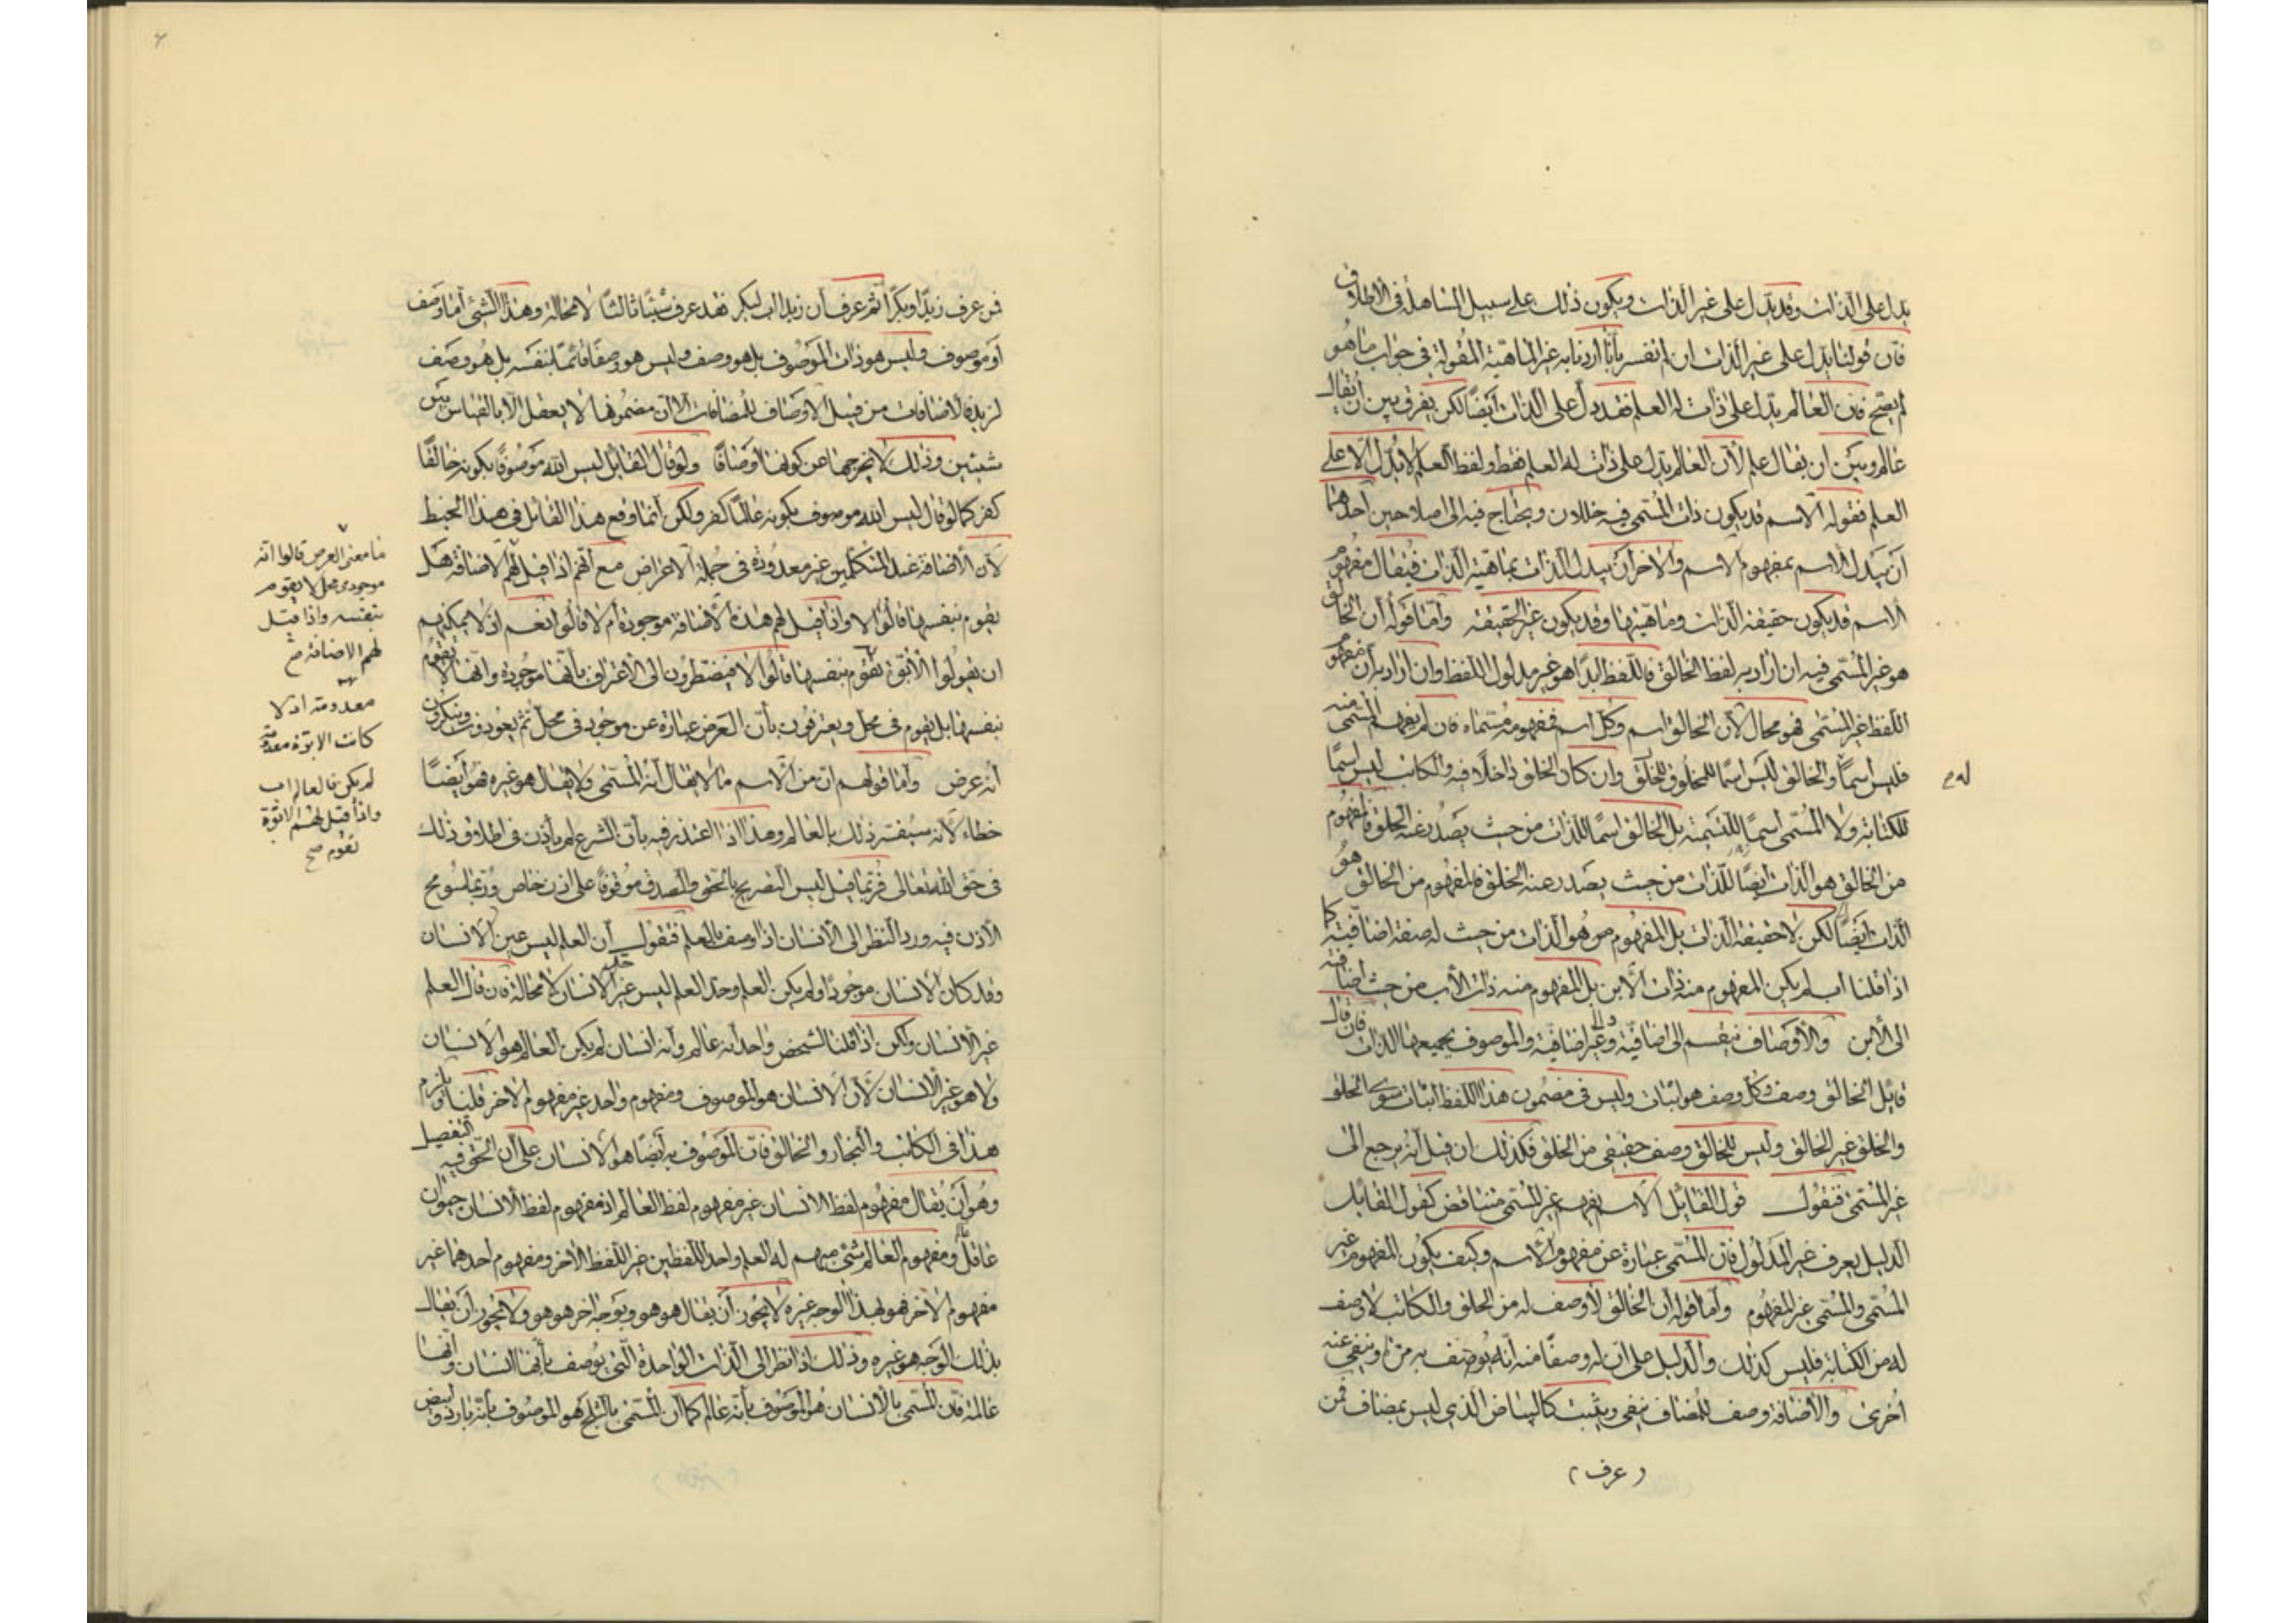 يدل على الذات وقد يدل على غير الذات ويكون ذلك على سبيل المساهلة فى الاطلاق
فان قولنا يدل على غير الذات ان لم نفسر بأنّا اردنا به غير الماهيّة المقولة فى جواب ما هو
لم يصح فان العالم يدل على ذات له العلم فقد دل على الذات ايضًا لكن يفرق بين ان يقال
عالم وبين ان يقال علم لأن العالم يدل على ذات له العلم فقط ولفظ العلم لا يدل الا على
العلم فقوله الاسم قد يكون ذات المسمى فيه خللان ويحتاج فيه الى اصلاحين احدهما
أن يبدل الاسم بمفهوم الاسم والاخر أن يبدل الذات بماهية الذات فيقال مفهوم
الاسم قد يكون حقيقة الذات وماهيتها وقد يكون غير الحقيقة وأمّا قوله أن الخالق
هو غير المسمى فيه ان اراد به لفظ الخالق فاللفظ ابدًا هو غير مدلول اللفظ وان اراد به أن مفهوم
اللفظ غير المسمى فهو محال لأن الخالق اسم وكل اسم فمفهومه مسماه فان لم يفهم المسمى منه
فليس اسمًا والخالق ليس اسمًا للمخلوق للخلق وان كان الخلق داخلًا فيه والكاتب ليس اسمًا
للكتابة ولا المسمى اسمًا للتسمية بل الخالق اسمًا للذات من حيث يصدر عنه الخلق فالمفهوم
من الخالق هو الذات ايضًا للذات من حيث يصدر عنه الخلق فالمفهوم من الخالق هو
الذات ايضًا لكن لا حقيقة الذات بل المفهوم هو الذات من حيث له صفة اضافيّة كما
اذا قلنا اب لم يكن المفهوم منه ذات الأبن بل المفهوم منه ذات الأب من حيث اضافته
الى الأبن والأوصاف ينقسم الى اضافيّة وغير اضافيّة والموصوف بجميعها الذات فان قال
قايل الخالق وصف وكل وصف هو اثبات وليس فى مضمون هذا اللفظ اثبات سوى الخلق
والخلق غير الخالق وليس للخالق وصف حقيقى من الخلق فكذلك ان قيل أنه يرجع الى
غير المسمى فنقول قول القايل الاسم يفهم غير المسمى متناقض كقول القايل
الدليل يعرف غير المدلول فان المسمى عبارة عن مفهوم الاسم وكيف يكون المفهوم غير
المسمى والمسمى غير المفهوم وأما قوله أن الخالق لا وصف له من الخلق والكاتب لا وصف
له من الكتابة فليس كذلك والدليل على ان له وصفًا منه انه يوصف به مرة وينفى عنه
اخرى والأضافة وصف للمضاف ينفى ويثبت كالبياض الذى ليس بمضاف فمن
(عرف)
له
فمن عرف زيدًا وبكرًا ثم عرف أن زيد اب لبكر فقد عرف شيئًا ثالثًا لا محالة وهذا الشئ أما وصف
او موصوف وليس هو ذات الموصوف بل هو وصف وليس هو وصفًا قائمًا بنفسه بل هو وصف
لزيد فالاضافات من قبيل الاوصاف للمضافات الا ان مضمونها لا يعقل الا بالقياس بين
شيئين وذلك لا يخرجها عن كونها اوصافًا ولو قال القايل ليس الله موصوفًا بكونه خالقًا
كفر كما لو قال ليس الله موصوف بكونه عالمًا كفر ولكن أنما وقع هذا القائل فى هذا الخبط
لأن الأضافة عند المتكلمين غير معدودة فى جملة الاعراض مع أنهم اذا قيل لهم الاضافة هل
يقوم بنفسها قالوا لا واذا قيل لهم هذه الاضافة موجودة أم لا قالوا نعم اذ لا يمكنهم
ان يقولوا الأبوّة تقوم بنفسها قالوا لا فيضطرون الى الاعتراف بأنها موجودة وانها لا تقوم
بنفسها بل يقوم فى محل ويعترفون بأن العرض عبارة عن موجود فى محل ثم يعودون وينكرون
أنه عرض وأما قولهم ان من الاسم ما لا يقال أنه المسمى ولا يقال هو غيره فهو ايضًا
خطاء لأنه سيفسر ذلك بالعالم وهذا اذا اعتذر فيه بأن الشرع لم يأذن فى اطلاق ذلك
فى حق الله تعالى فربّما قيل ليس التصريح بالحق والصدق موقوفًا على اذن خاص وربّما يسومح
الأذن فيه ورد النظر الى الأنسان اذا وصف بالعلم فنقول أن العلم ليس عين الانسان
وقد كان الانسان موجودًا ولم يكن العلم وحد العلم ليس غير الانسان لا محالة فان قال العلم
غير الأنسان ولكن اذا قلنا لشخص واحد أنه عالم وأنه انسان لم يكن العالم هو الانسان
ولا هو غير الانسان لأن الانسان هو الموصوف ومفهوم واحد غير مفهوم الاخر قلنا ويلزم
هذا فى الكاتب والنجار والخالق فان الموصوف به أيضًا هو الانسان على أن الحق فيه التفصيل
وهو أن يقال مفهوم لفظ الانسان غير مفهوم لفظ العالم اذ مفهوم لفظ الأنسان حيوان
عاقل ومفهوم العالم شئ مبهم له العلم واحد اللفظين غير اللفظ الاخر ومفهوم احدهما غير
مفهوم الاخر فهو بهذا الوجه غيره لا يجوز أن يقال هو هو وبوجه اخر هو هو ولا يجوز أن يقال
بذلك الوجه هو غيره وذلك اذا نظر الى الذات الواحدة التى يوصف بأنها انسان وأنها
عالمة فان المسمى بالانسان هو الموصوف بأنه عالم كما أن المسمى بالثلج هو الموصوف بأنه بارد وابيض
ما معنى العرض قالوا انه
موجود فى محل لا يقوم
بنفسه واذا قيل
لهم الاضافة صح
معدومة اذ لا
كانت الابوّة معدومة
لم يكن فى العالم اب
واذا قيل لهم الابوّة
تقوم صح